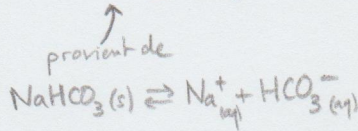 provient de
NaHCO₃(s) ⇄ Na⁺(aq) + HCO₃⁻(aq)